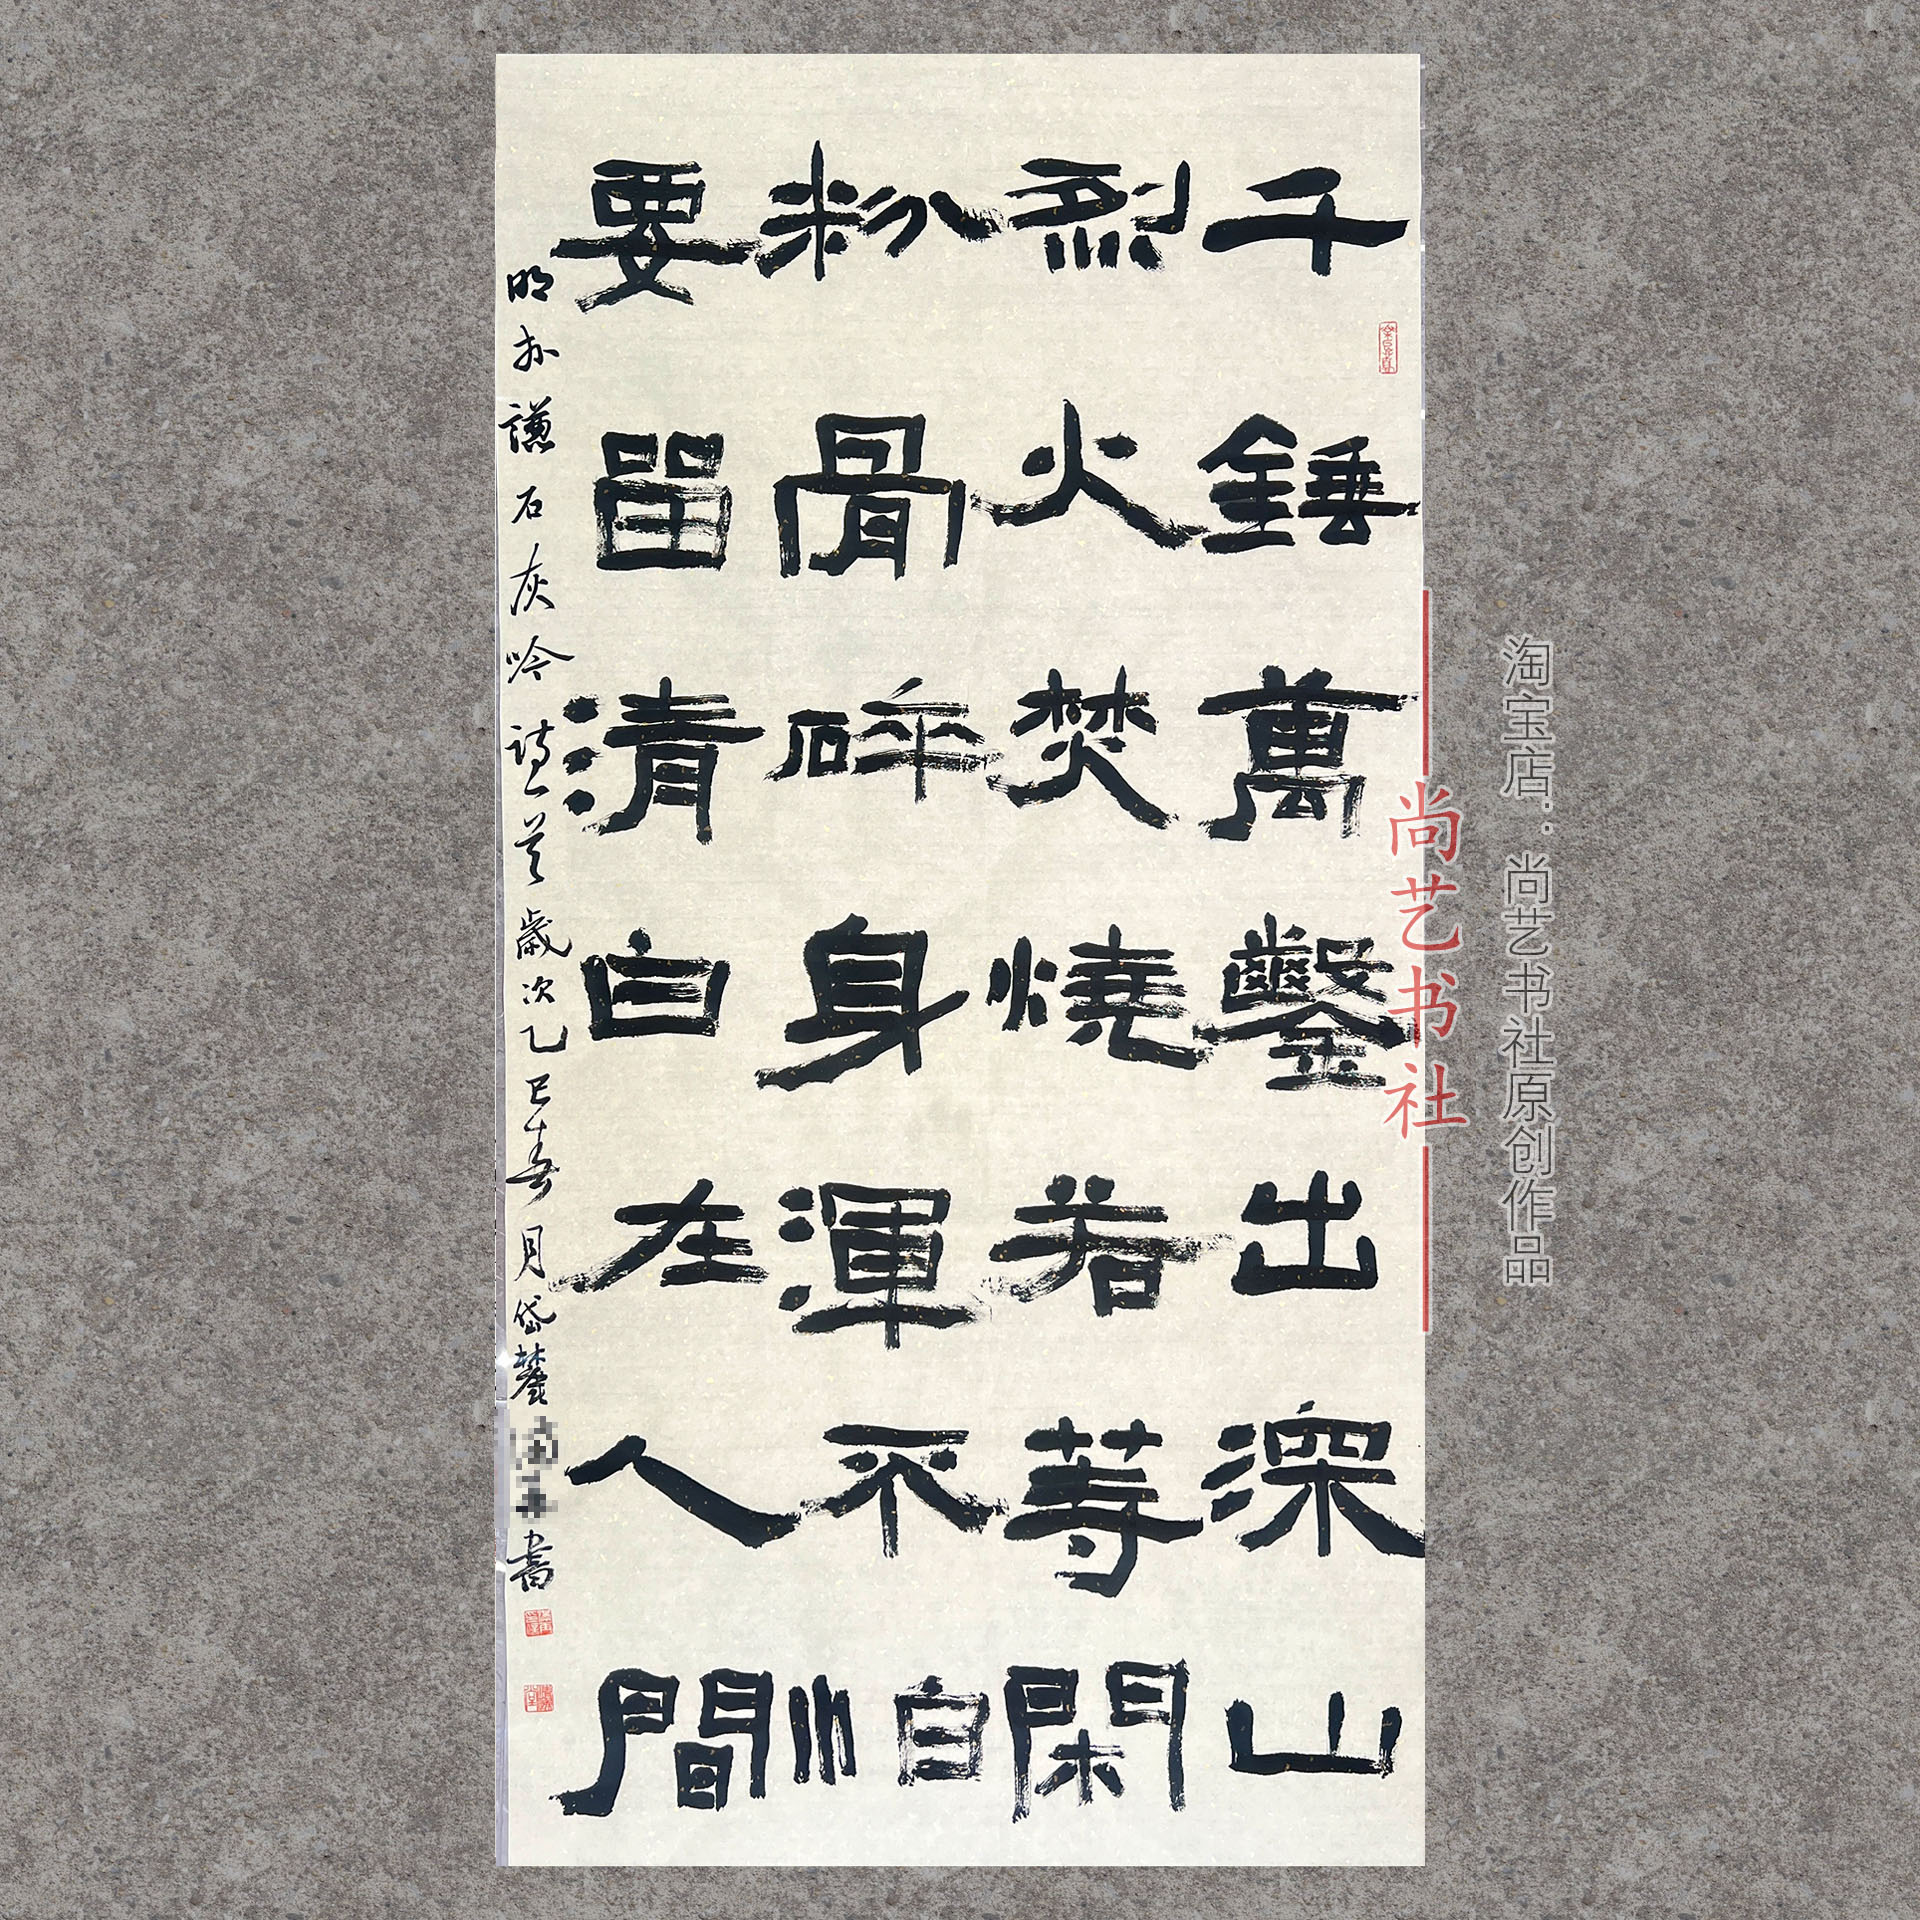 千錘萬鑿出深山
烈火焚燒若等閑
粉骨碎身渾不怕
要留清白在人間
明于謙石灰吟詩一首歲次乙巳春月岱麓
書
尚艺书社
淘宝店：尚艺书社原创作品